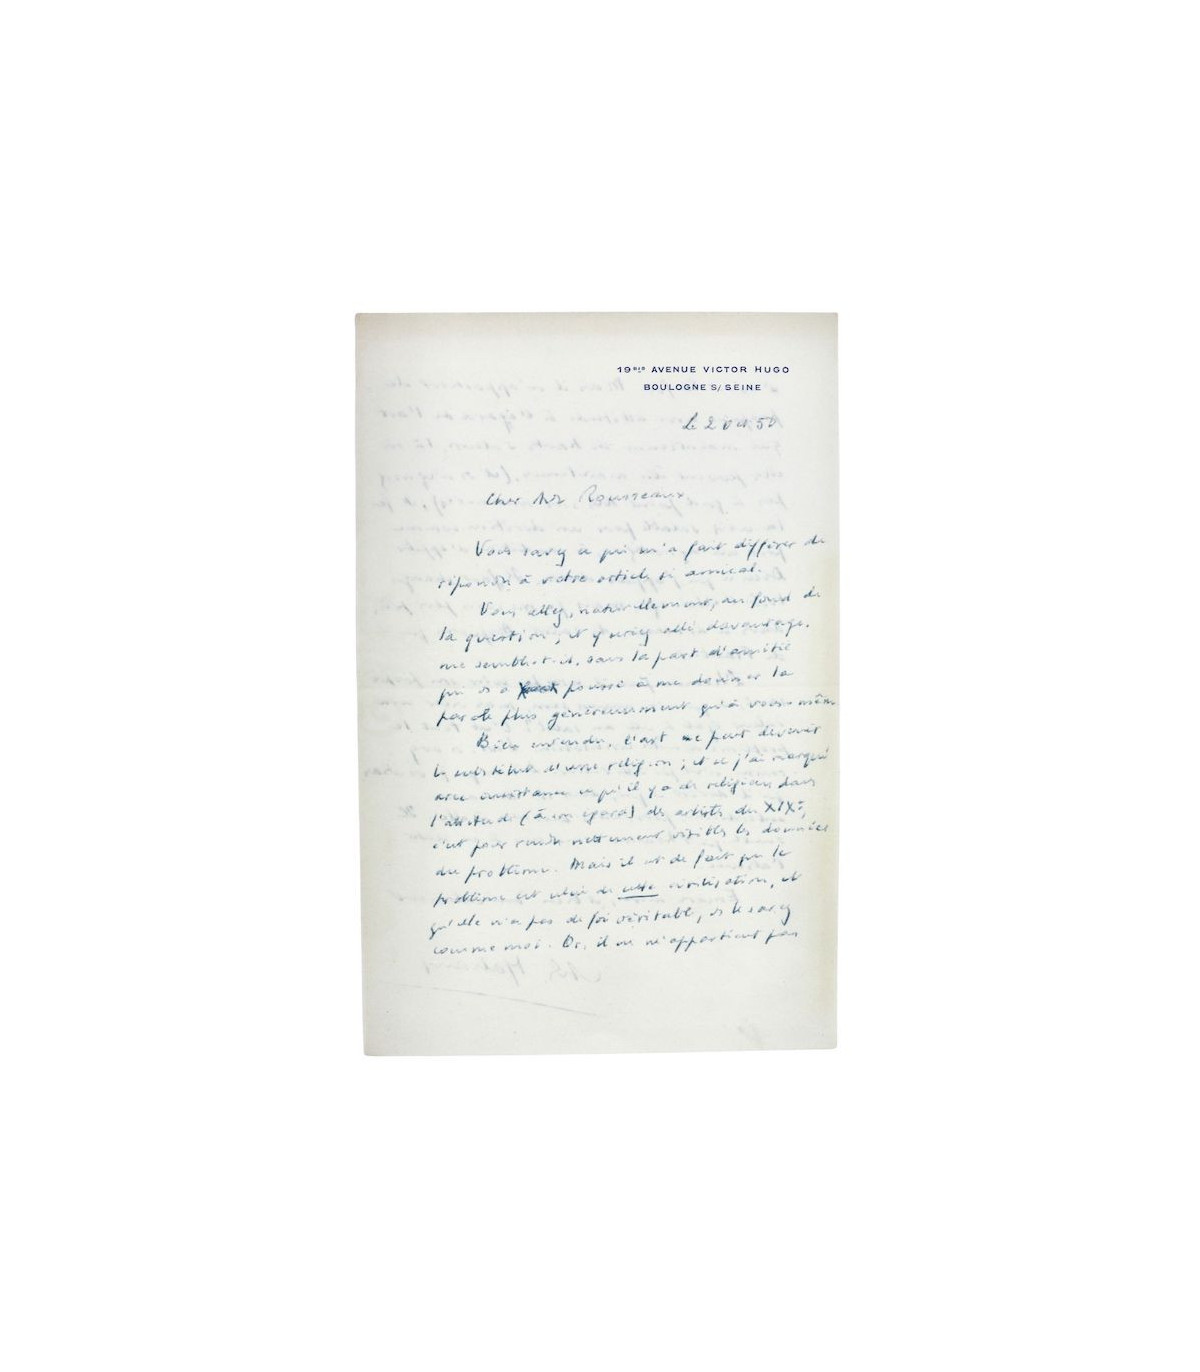 19BIS AVENUE VICTOR HUGO
BOULOGNE S/ SEINE
Le 2 oct 50
Cher Rousseaux
Vous savez ce qui m'a fait différer de
répondre à votre article si amical.
Vous allez, naturellement, au fond de
la question ; et y seriez allé davantage,
me semble-t-il, sans la part d'amitié
qui vs a poussé à me donner la
parole plus généreusement qu'à vous-même
Bien entendu, l'art ne peut devenir
le substitut d'une religion ; et si j'ai marqué
avec insistance ce qu'il y a de religieux dans
l'attitude (à son égard) des artistes du XIXe,
c'est pour rendre nettement visibles les données
du problème. Mais il est de fait que le
problème est celui de cette civilisation, et
qu'elle n'a pas de foi véritable, vs le savez
comme moi. Or, il ne m'appartient pas